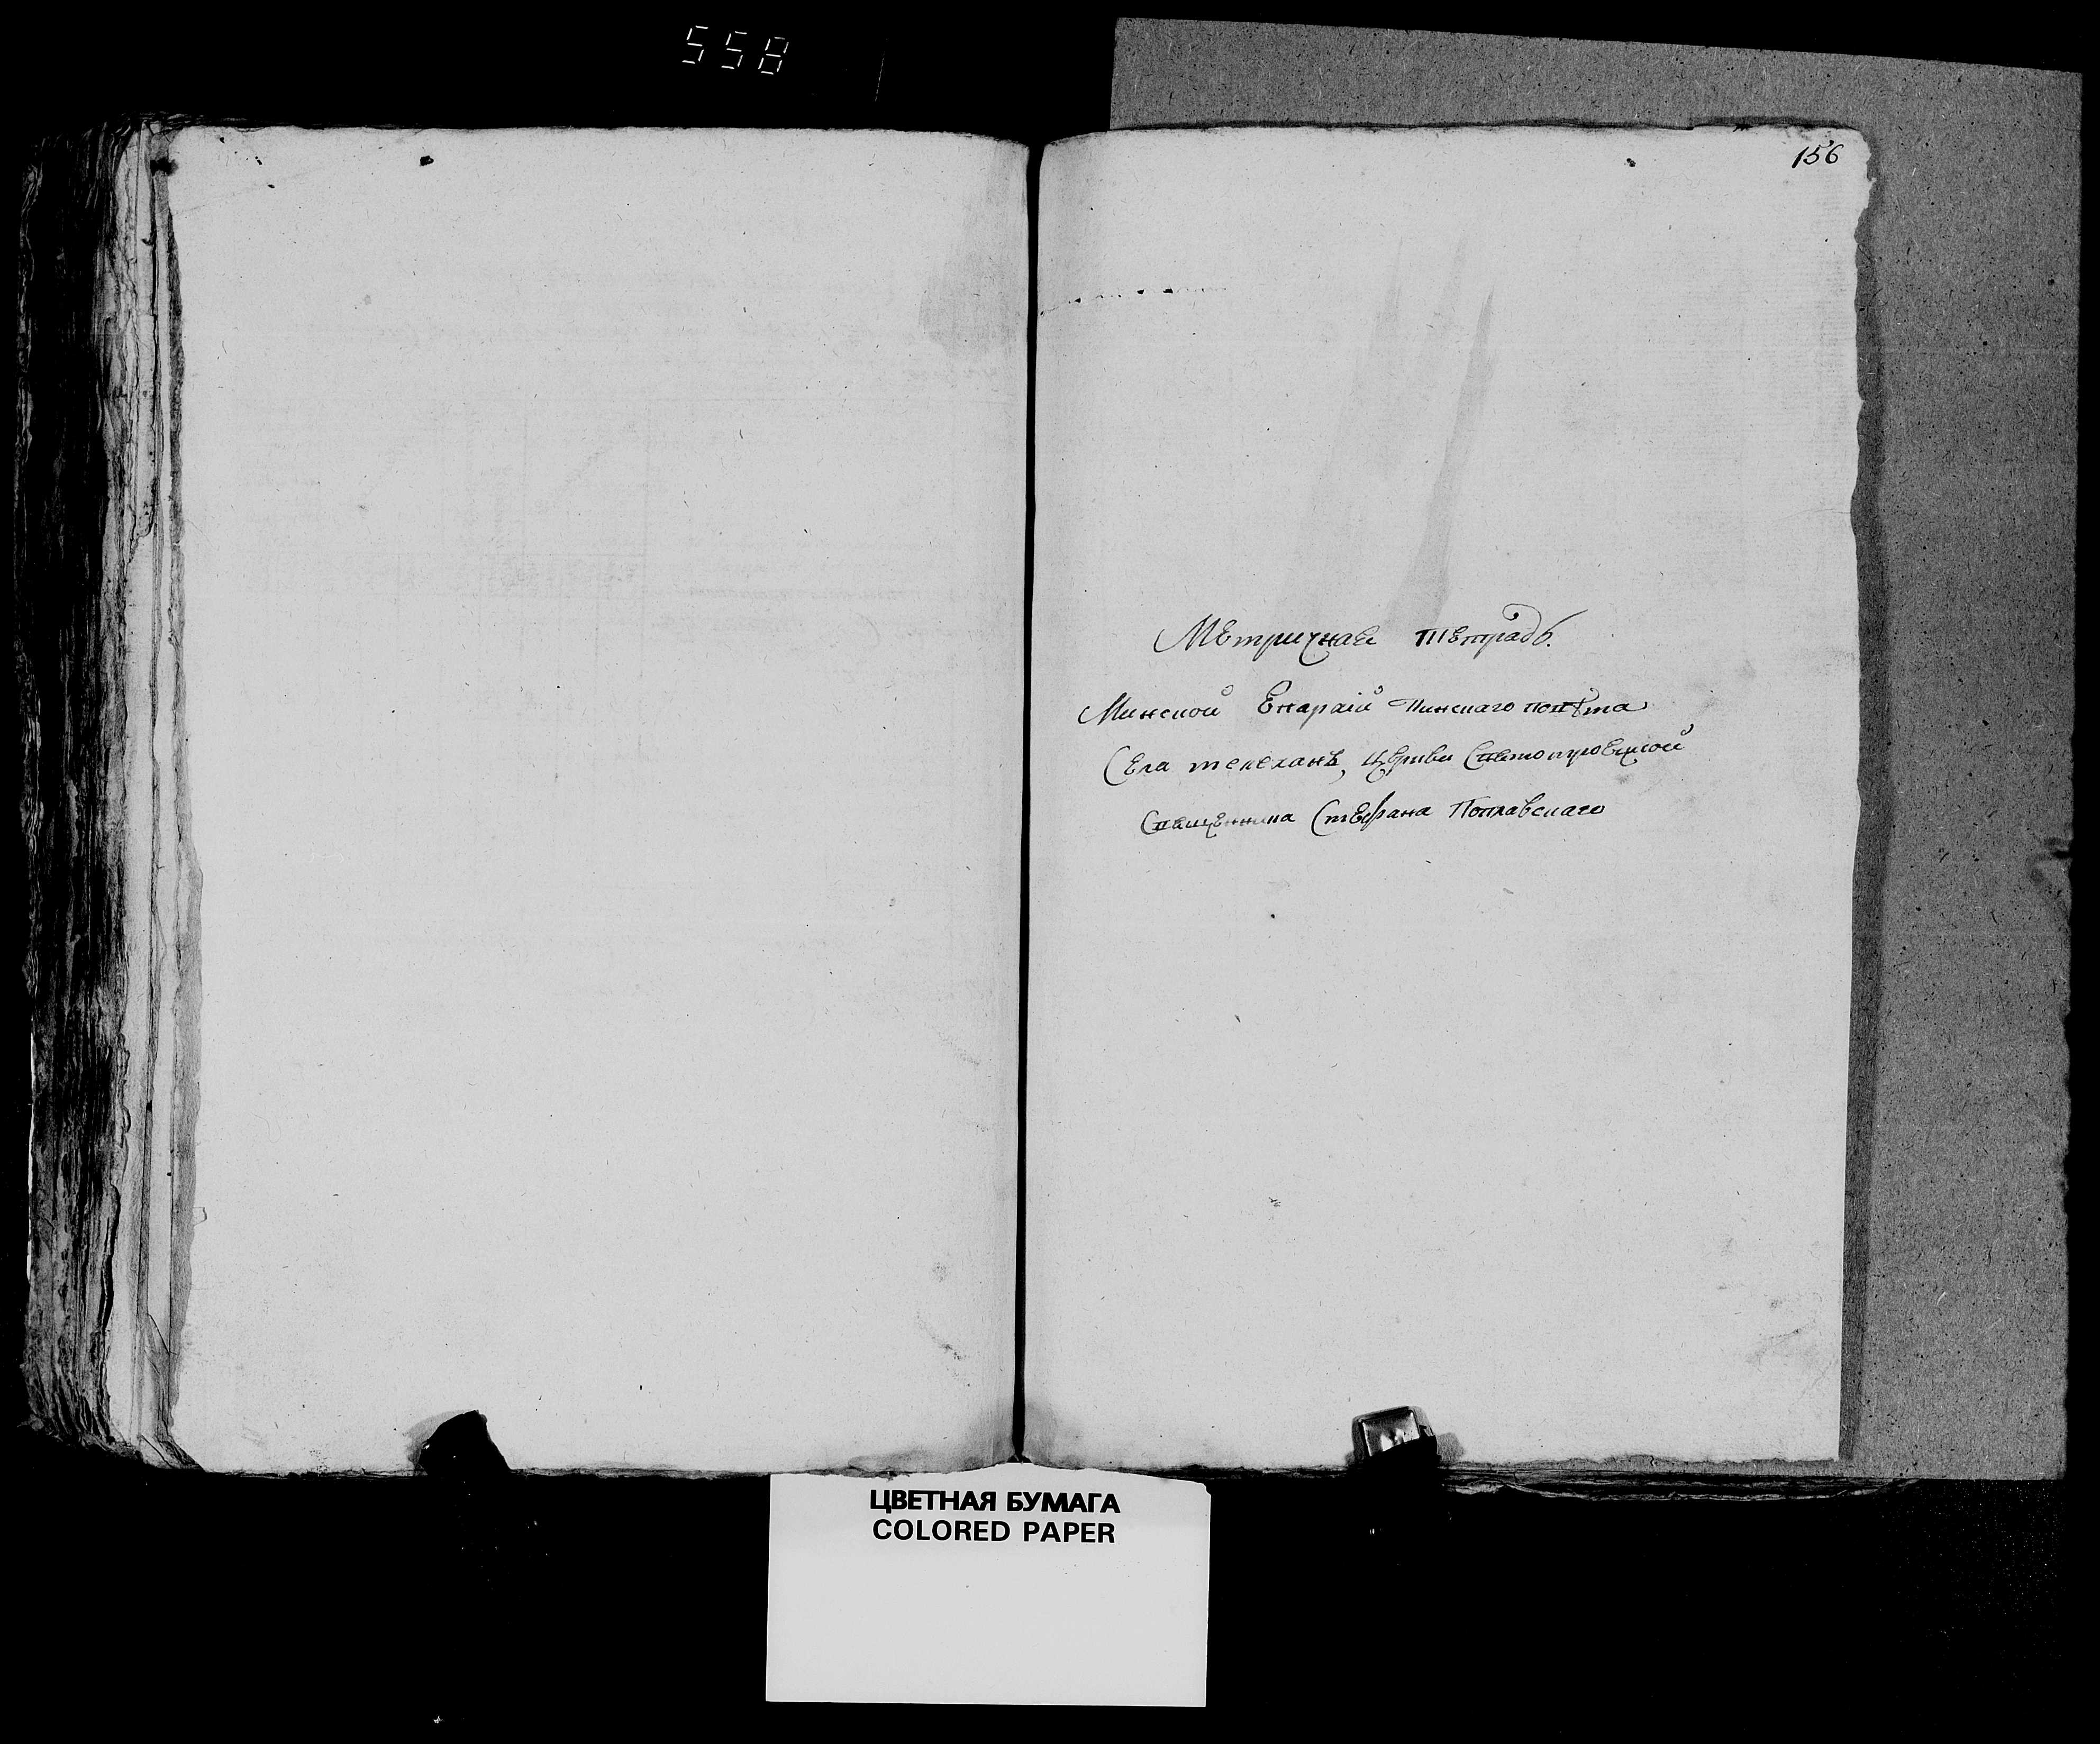 558
156
Метричная тетрадь.
Минской Епархіи Пинскаго повѣта
Села телеханъ, Церкви Святотроецкой
Священника Стефана Поплавскаго
ЦВЕТНАЯ БУМАГА
COLORED PAPER